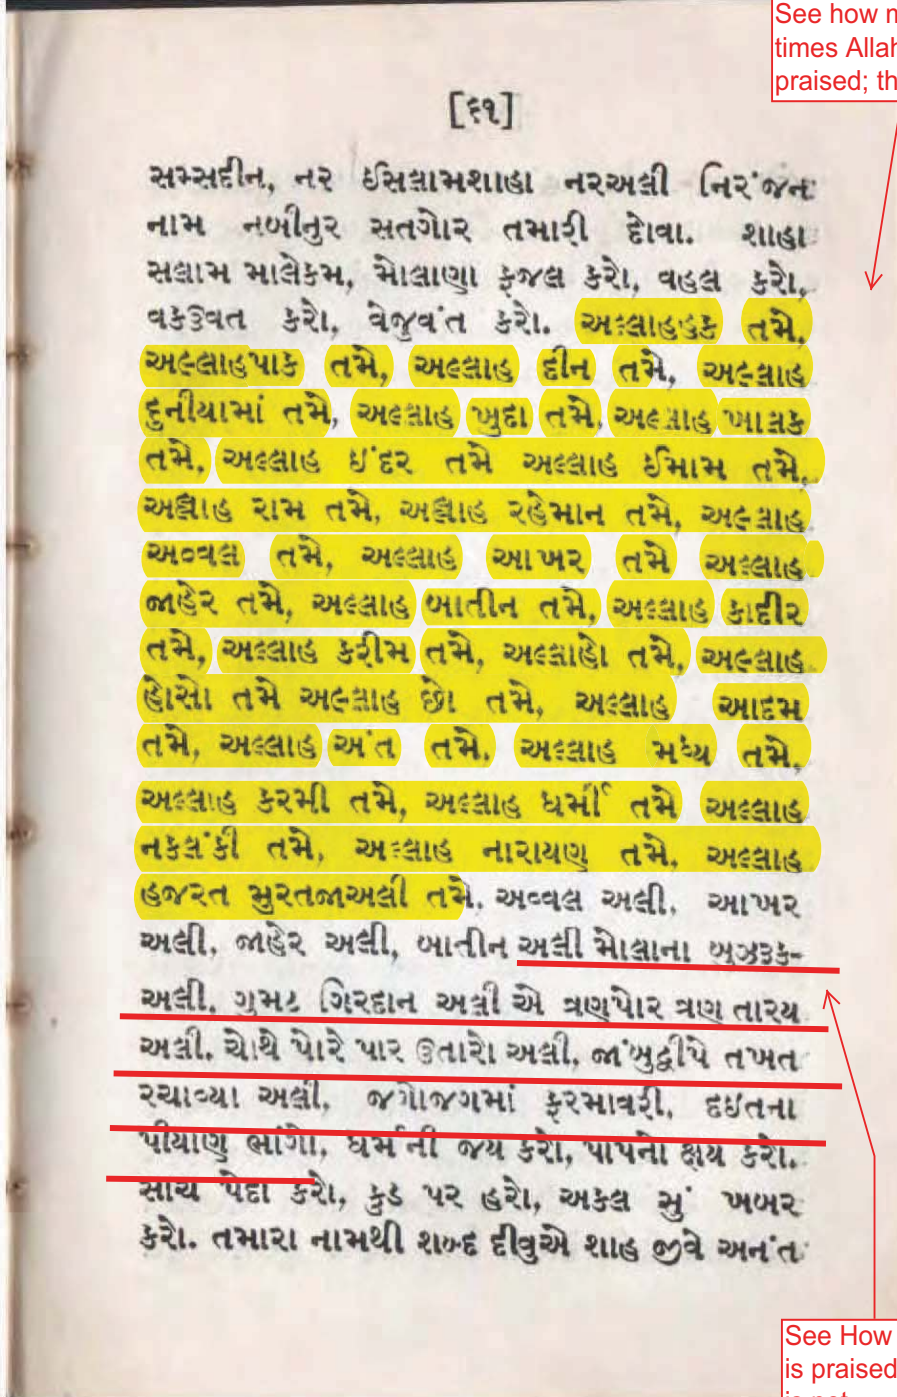 See how m
times Allah
praised; th
[૬૧]
સમ્સદીન, નર ઈસલામશાહા નરઅલી નિરંજન
નામ નબીનુર સતગોર તમારી દોવા. શાહા
સલામ માલેકમ, મોલાણા ફજલ કરો, વહલ કરો,
વકઉવત કરો, વેજુવંત કરો. અલ્લાહહક તમે,
અલ્લાહપાક તમે, અલ્લાહ દીન તમે, અલ્લાહ
દુનીયામાં તમે, અલ્લાહ ખુદા તમે, અલ્લાહ ખાલક
તમે, અલ્લાહ ઇંદર તમે અલ્લાહ ઈમામ તમે,
અલ્લાહ રામ તમે, અલ્લાહ રહેમાન તમે, અલ્લાહ
અવ્વલ તમે, અલ્લાહ આખર તમે અલ્લાહ
જાહેર તમે, અલ્લાહ બાતીન તમે, અલ્લાહ કાદીર
તમે, અલ્લાહ કરીમ તમે, અલ્લાહો તમે, અલ્લાહ
હોસો તમે અલ્લાહ છો તમે, અલ્લાહ આદમ
તમે, અલ્લાહ અંત તમે. અલ્લાહ મધ્ય તમે,
અલ્લાહ કરમી તમે, અલ્લાહ ધર્મી તમે અલ્લાહ
નકલંકી તમે, અલ્લાહ નારાયણ તમે, અલ્લાહ
હજરત મુરતજાઅલી તમે. અવ્વલ અલી, આખર
અલી, જાહેર અલી, બાતીન અલી મોલાના બુઝરૂક-
અલી, ગુમટ ગિરદાન અલી એ ત્રણપોર ત્રણ તારય
અલી. ચોથે પોરે પાર ઉતારો અલી, જાંબુદ્વીપે તખત
રચાવ્યા અલી, જગોજગમાં ફરમાવરી, દઇતના
પીયાણુ ભાંગો, ધર્મની જય કરો, પાપનો ક્ષય કરો.
સાચ પેદા કરો, કુડ પર હરો, અકલ સું ખબર
કરો. તમારા નામથી શબ્દ દીવુએ શાહ જીવે અનંત
See How
is praised
is not